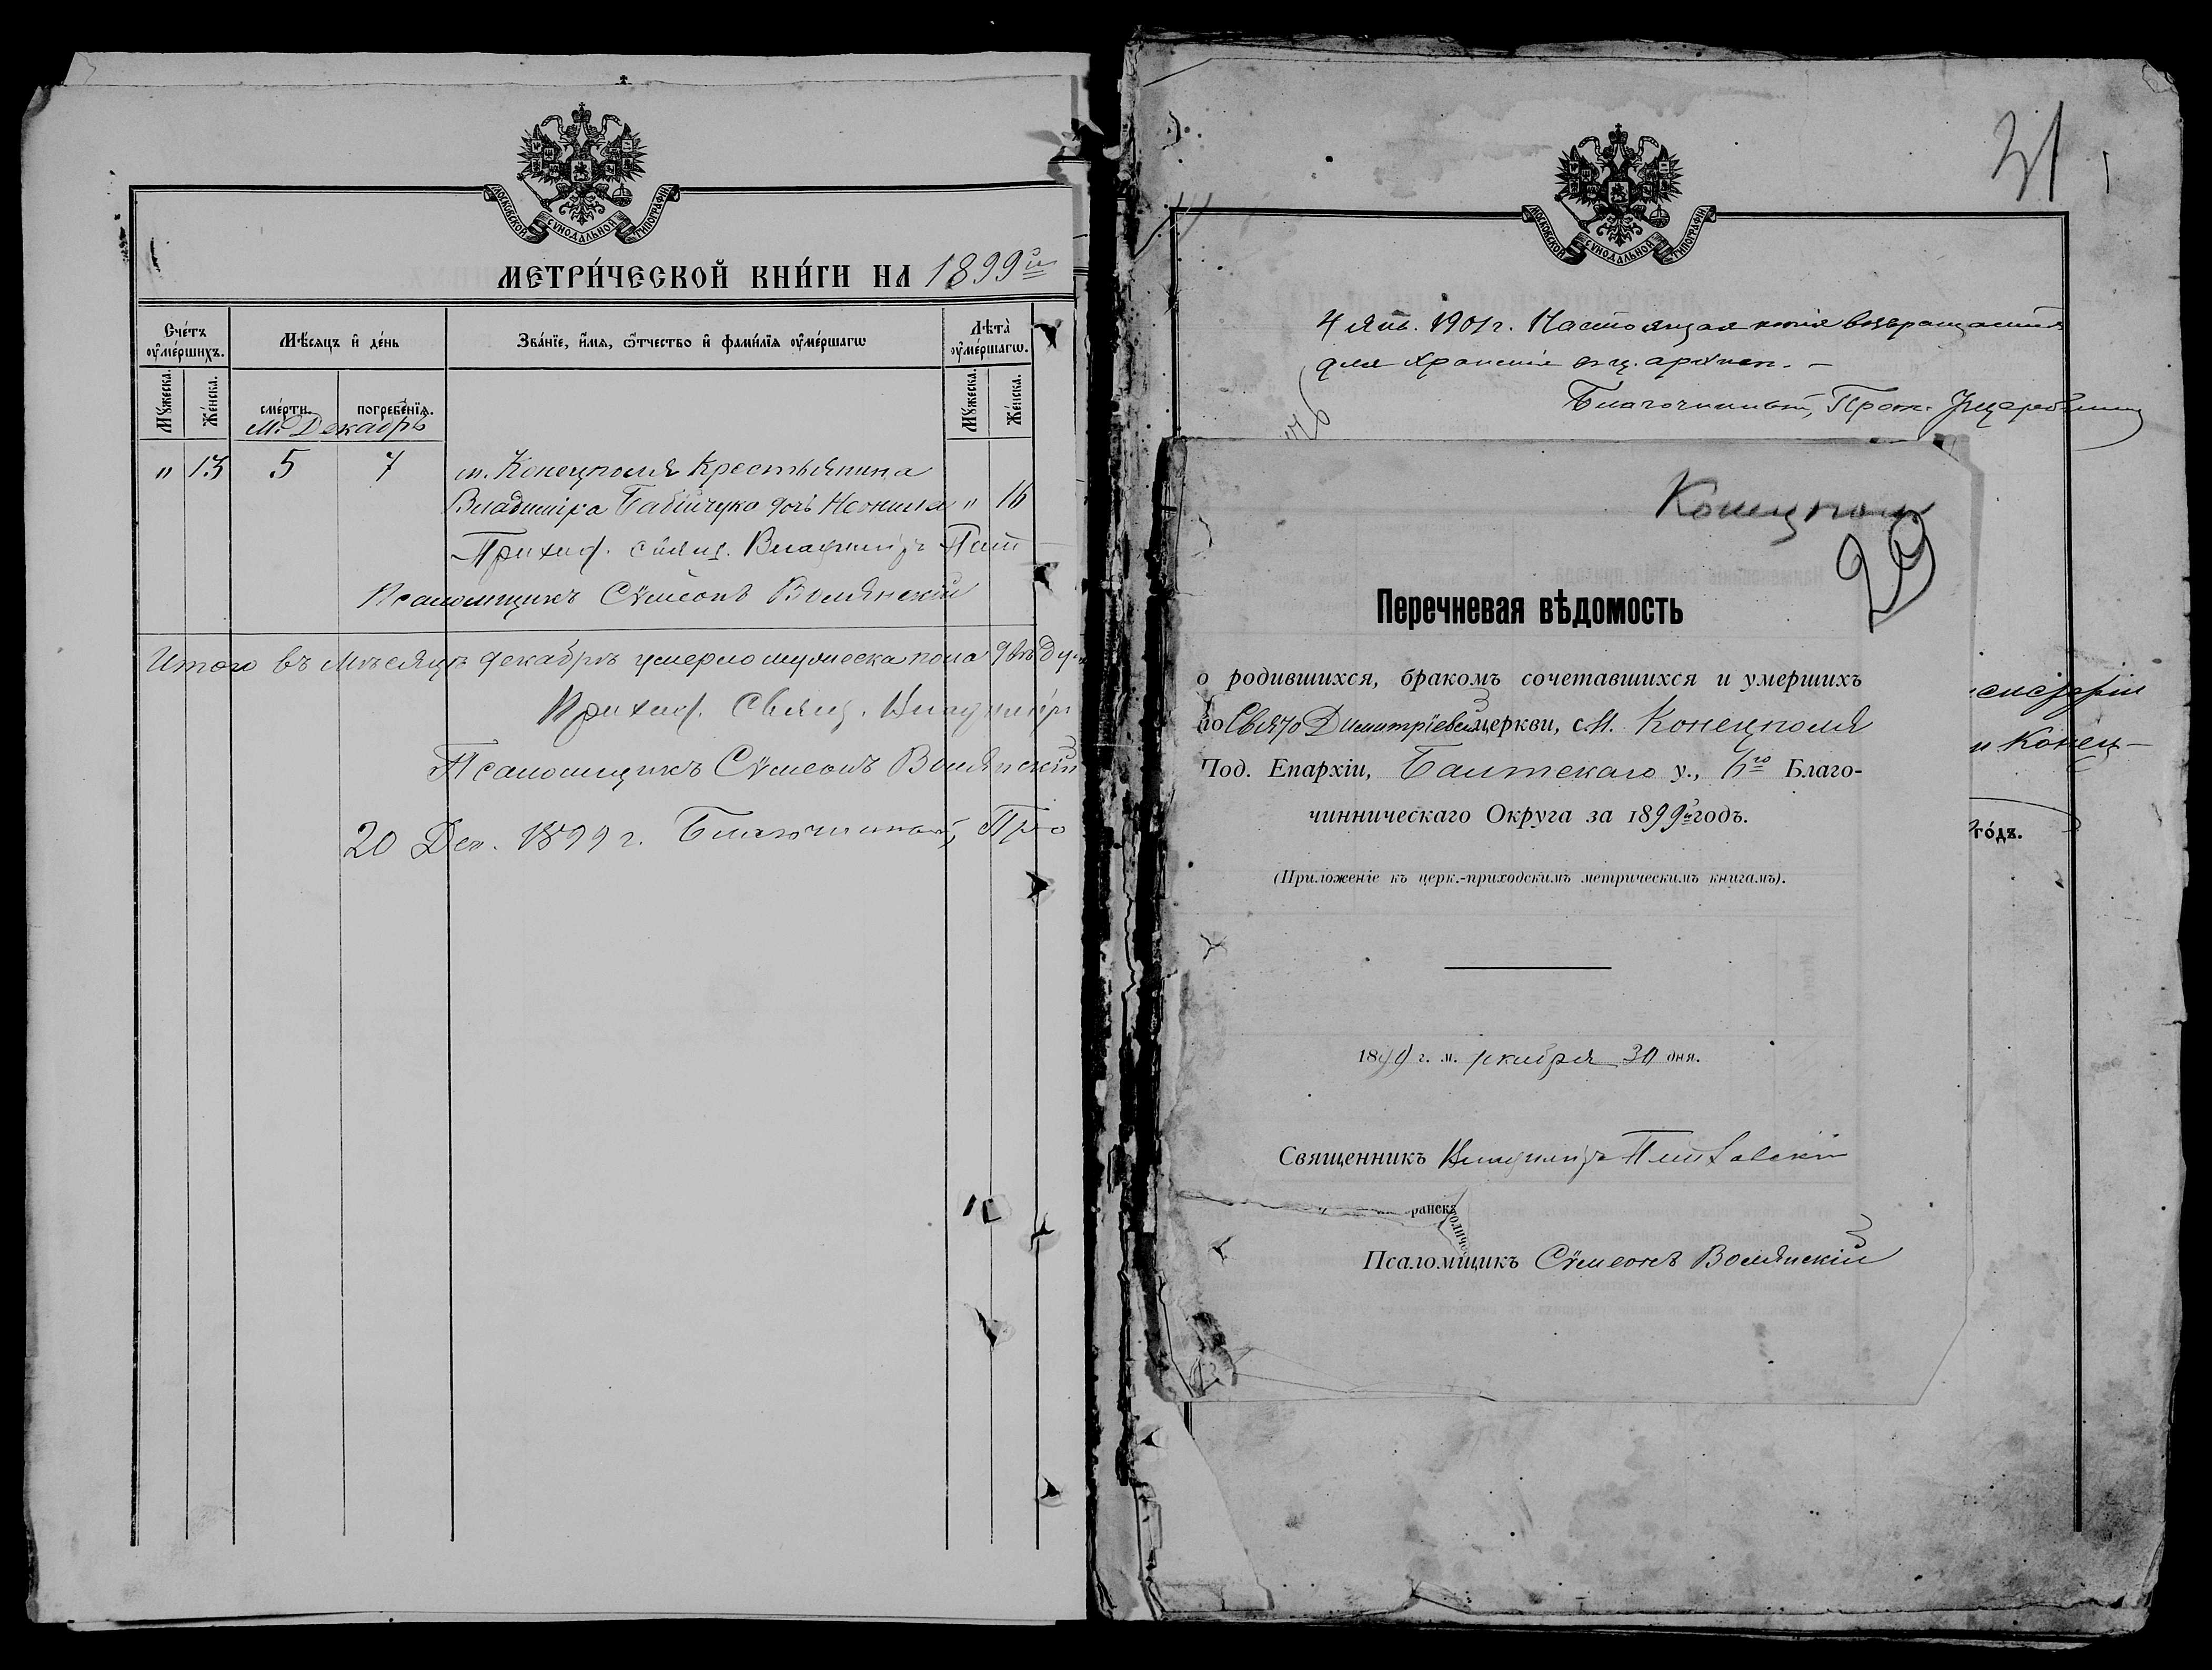 МОСКОВСКОЙ СѴНОДАЛЬНОЙ ТИПОГРАФІИ
МЕТРИ́ЧЕСКОЙ КНИ́ГИ НА 1899й
Сче́тъ оу҆ме́ршихъ.
Мѣ́сяцъ и҆ де́нь
Зва́нїе, и҆́мя, ѻ҆́тчество и҆ фами́лїя оу҆ме́ршагѡ
Лѣта̀ оу҆ме́ршагѡ.
Мꙋ́жеска.
Же́нска.
сме́рти.
погребе́нїя.
Мꙋ́жеска.
Же́нска.
м. Декабрь
" 13 5 7 м. Конецполя Крестьянина
Владиміра Бабійчука дочь Неонила " 16
Приход. свящ. Владимiръ
Псаломщикъ Сѵмеонъ Волянскій
Итого въ мѣсяцѣ декабрѣ умерло мужеска пола двѣ
Приход. Свящ. Владимiръ
Псаломщикъ Сѵмеонъ Волянскій
20 Дек. 1899 г. Благочинный, Про
31
МОСКОВСКОЙ СѴНОДАЛЬНОЙ ТИПОГРАФІИ
4 янв. 1901 г. Настоящая копія возвращается
для храненія въ ц. архивѣ. –
Благочинный, Прот.
Конецпол
29
Перечневая вѣдомость
о родившихся, бракомъ сочетавшихся и умершихъ
по Свято Димитріевской церкви, с. М. Конецполя
Под. Епархіи, Балтскаго у., 6го Благо-
чинническаго Округа за 1899й годъ.
(Приложеніе къ церк.-приходскимъ метрическимъ книгамъ).
и Конец-
го́дъ.
1899 г. м. декабря 30 дня.
Священникъ Владиміръ
ранскъ
Псаломщикъ Сѵмеонъ Волянскій